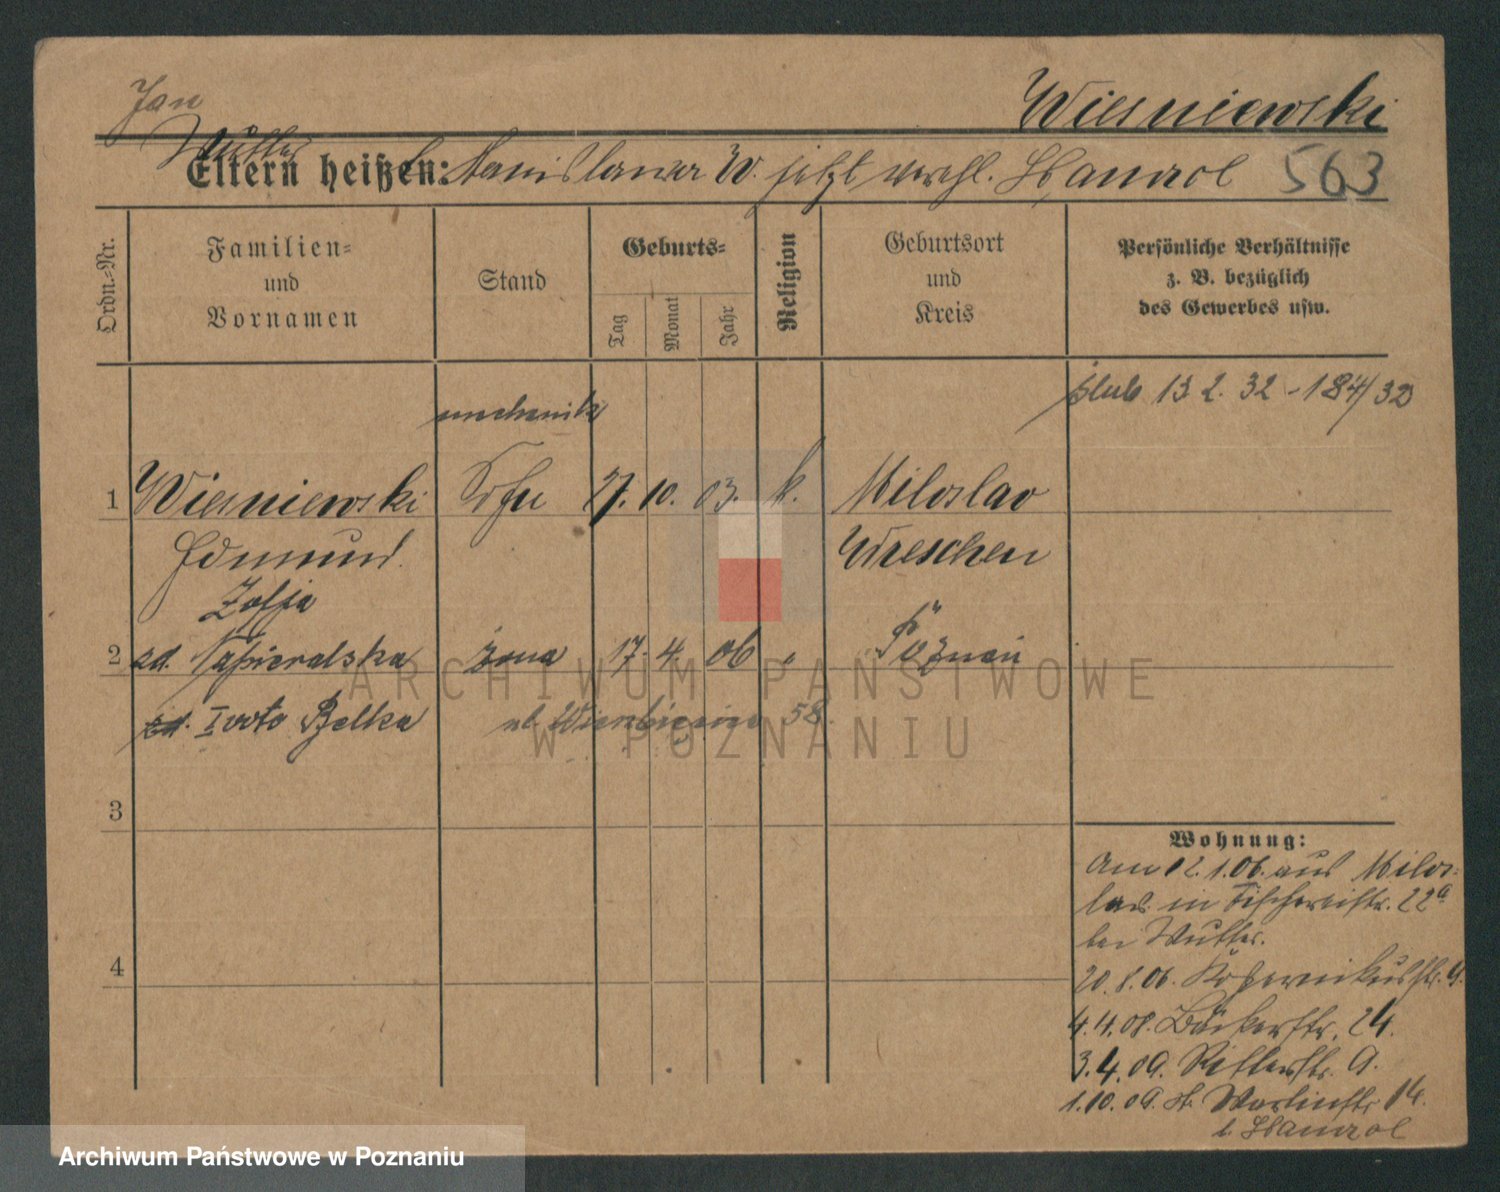 Jan
Wiesniewski
Mutter
Eltern heißen: Stanislawa W. jetzt verehl. Hamrol 563
Ordn.-Nr.
Familien-
und
Vornamen
Stand
Geburts-
Tag
Monat
Jahr
Religion
Geburtsort
und
Kreis
Persönliche Verhältnisse
z. B. bezüglich
des Gewerbes usw.
ślub 13 2. 32 - 184/32
mechanik
1 Wiesniewski Sohn 27. 10. 03. k. Miloslav
Edmund. Wreschen
Zofja
2 zd. Papieralska żona 17. 4. 06 " Poznań
zd. I voto Bjelka 58
3
4
Wohnung:
Am 12.1.06. aus Milos-
lav in Fischereistr. 22a
bei Mutter.
20.8.06. Kopernikusstr. 9.
4.4.08. Bäckerstr. 24.
3.4.09. Ritterstr. 9.
1.10.09. St. Martinstr. 14.
b. Hamrol
ARCHIWUM PAŃSTWOWE
W POZNANIU
Archiwum Państwowe w Poznaniu